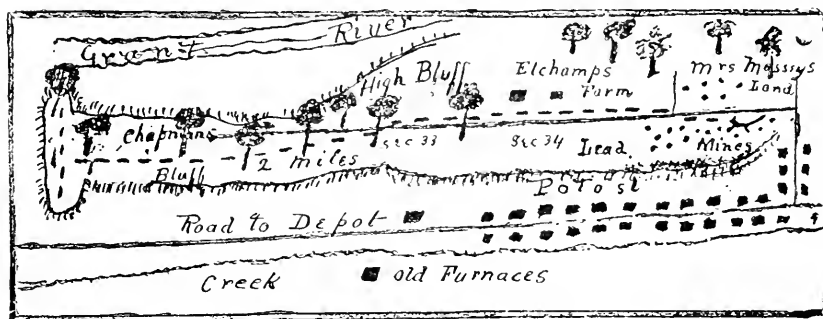 Grant River
High Bluff
Elchamps
Farm
Mrs Masseys
Land
Chapmans
Bluff
2 miles
Sec 33
Sec 34
Lead Mines
Potosi
Road to Depot
4
Creek
old Furnaces